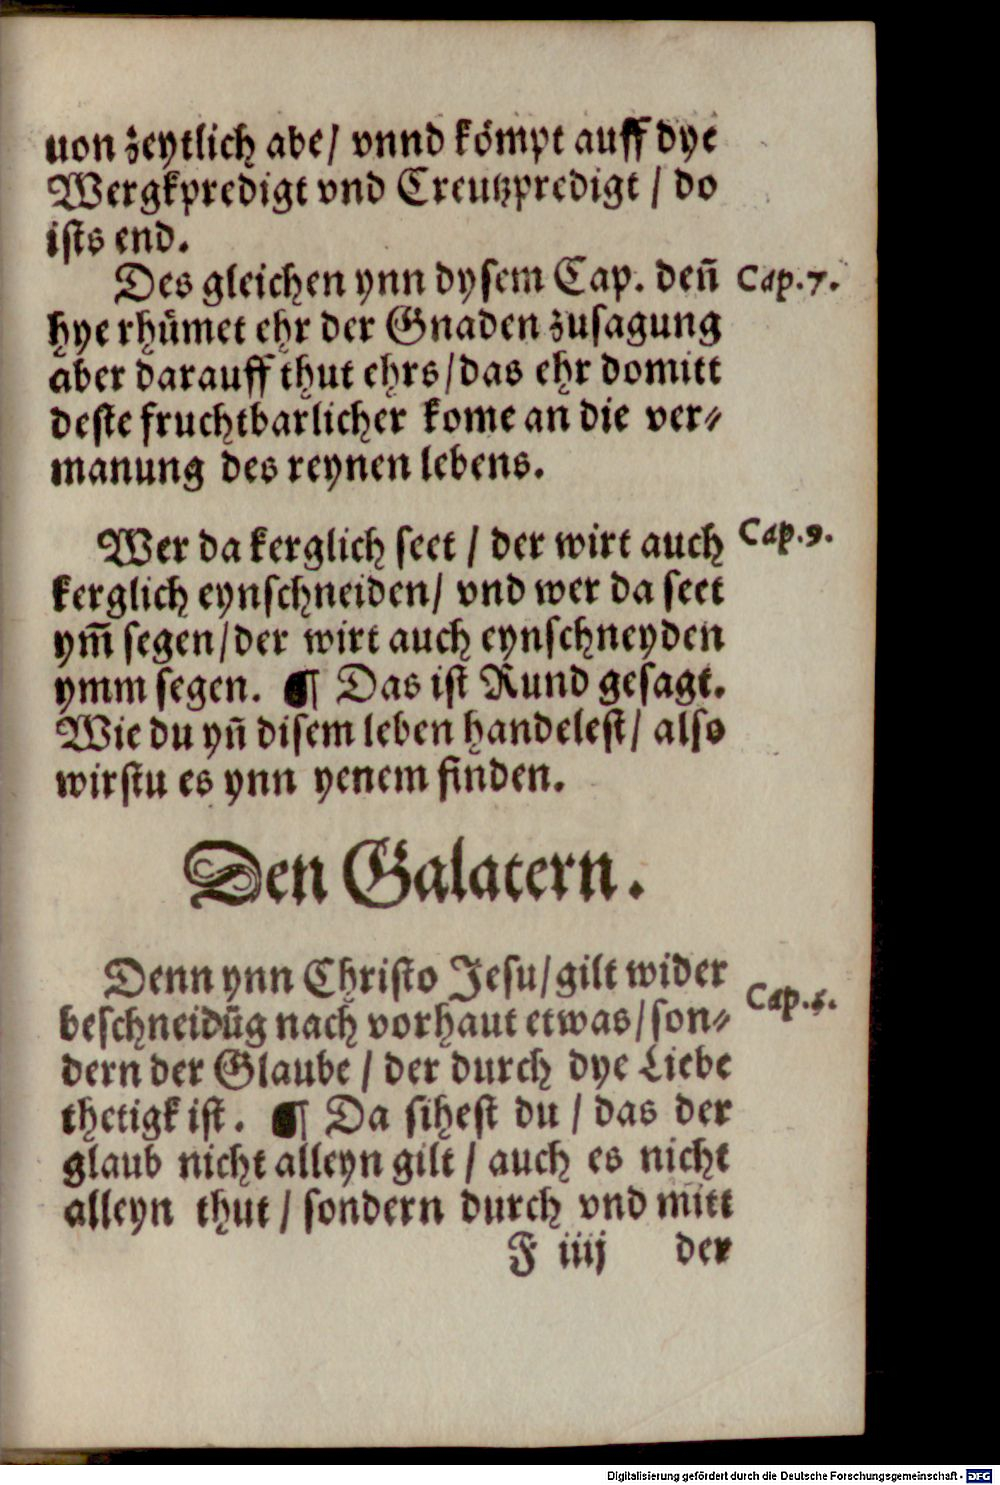 uon zeytlich abe/ vnnd kömpt auff dye
Wergkpredigt vnd Creutzpredigt / do
ists end.
Des gleichen ynn dysem Cap. deñ Cap.7.
hye rhümet ehr der Gnaden zusagung
aber darauff thut ehrs/das ehr domitt
deste fruchtbarlicher kome an die ver⸗
manung des reynen lebens.
Wer da kerglich seet / der wirt auch Cap.9.
kerglich eynschneiden/ vnd wer da seet
ym̃ segen/der wirt auch eynschneyden
ymm segen. ¶ Das ist Rund gesagt.
Wie du yñ disem leben handelest/ also
wirstu es ynn yenem finden.
Den Galatern.
Denn ynn Christo Jesu/gilt wider
beschneidũg nach vorhaut etwas/son⸗ Cap.
dern der Glaube / der durch dye Liebe
thetigk ist. ¶ Da sihest du / das der
glaub nicht alleyn gilt / auch es nicht
alleyn thut / sondern durch vnd mitt
F iiij der
Digitalisierung gefördert durch die Deutsche Forschungsgemeinschaft - DFG